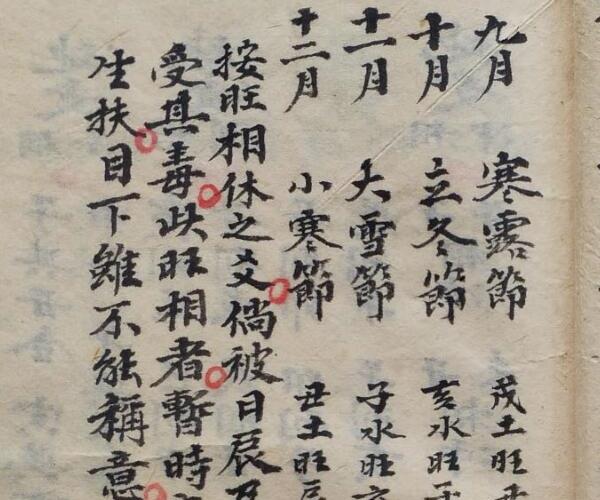 九月 寒露節 戊土旺
十月 立冬節 亥水旺
十一月 大雪節 子水旺
十二月 小寒節 丑土旺
按旺相休之爻倘被日辰
受其毒此旺相者暫時
生扶目下雖不能稱意